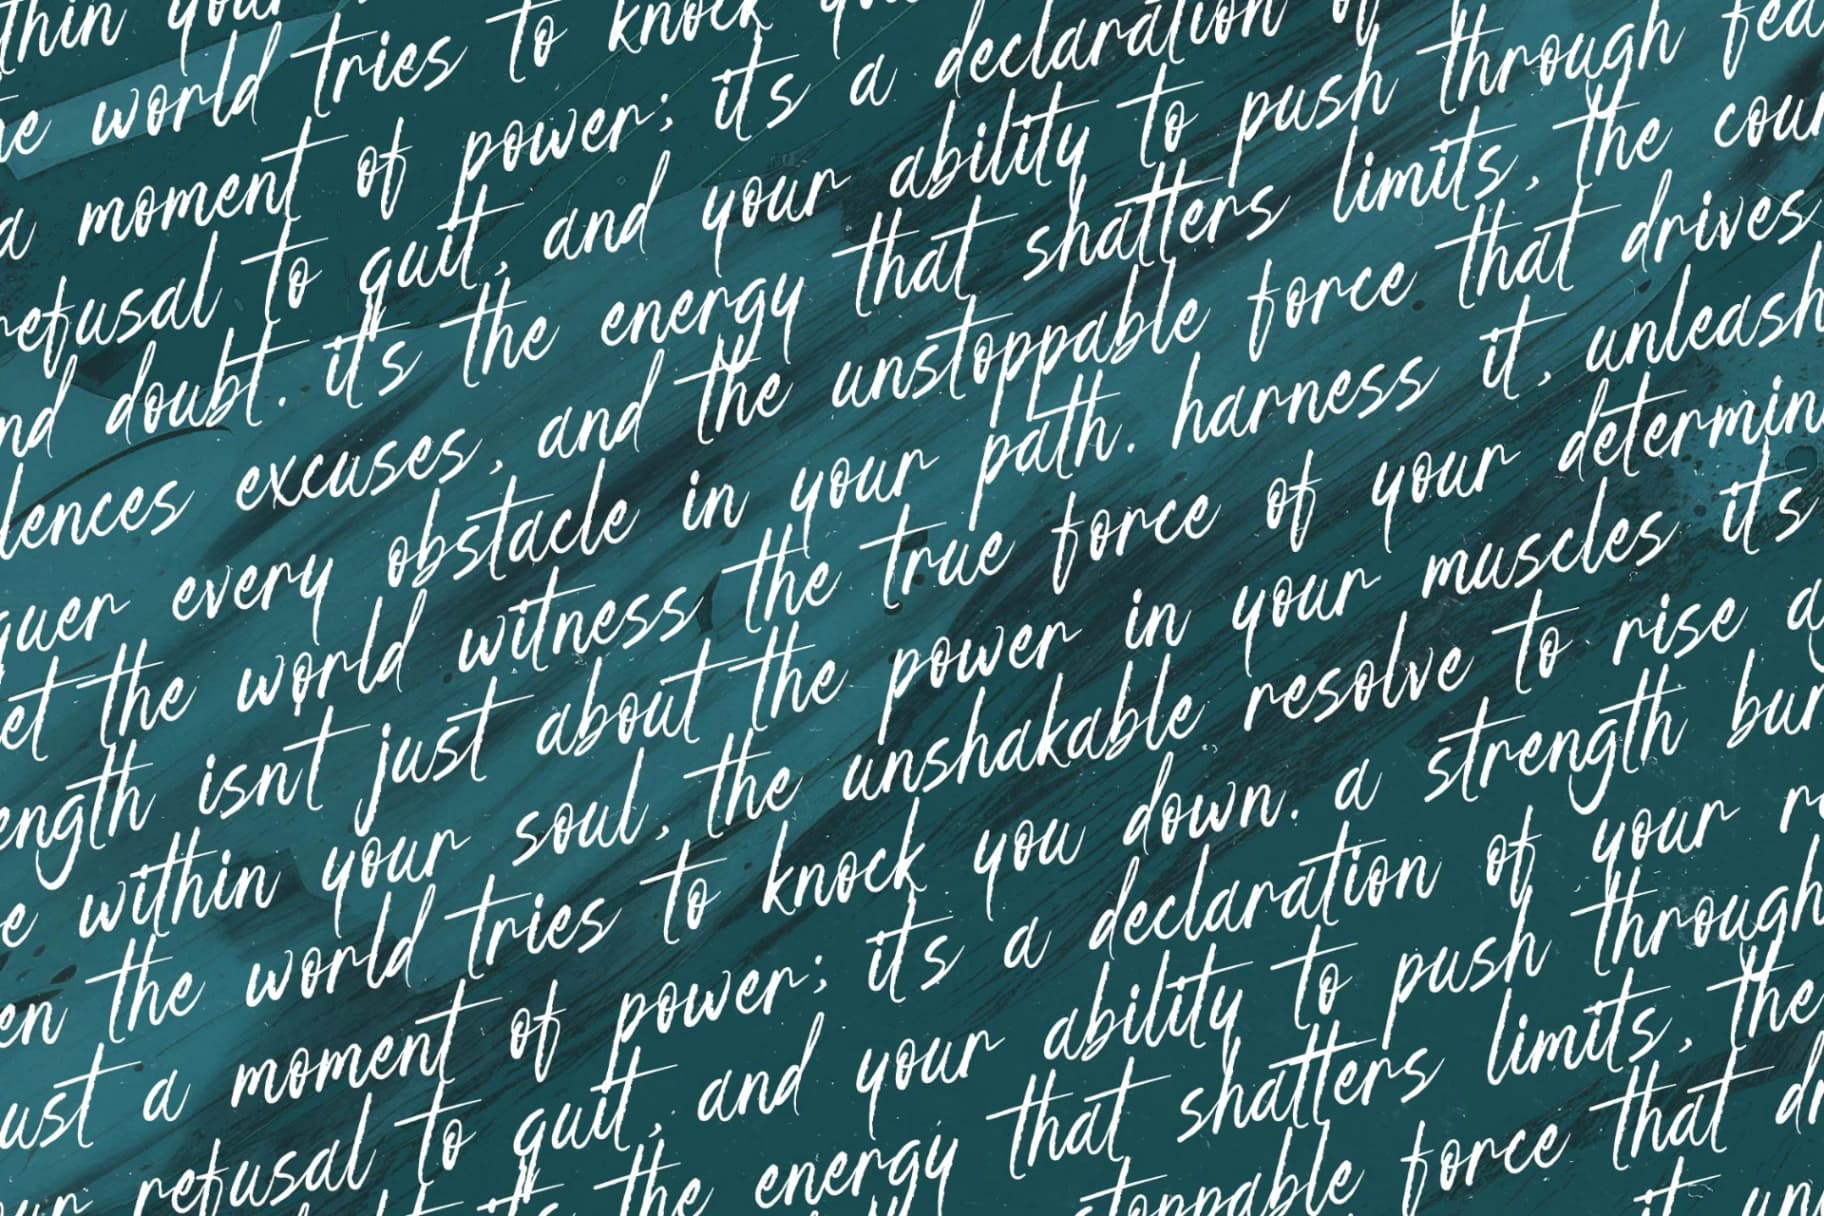 thin your
the world tries to knock you
a moment of power; it's a declaration of
refusal to quit, and your ability to push through fea
nd doubt. it's the energy that shatters limits, the cour
lences excuses, and the unstoppable force that drives
quer every obstacle in your path. harness it, unleash
let the world witness the true force of your determin
ength isn't just about the power in your muscles it's
e within your soul, the unshakable resolve to rise ag
en the world tries to knock you down. a strength bur
ust a moment of power; it's a declaration of your re
ur refusal to quit, and your ability to push through
it's the energy that shatters limits, the
stoppable force that dr
it, un